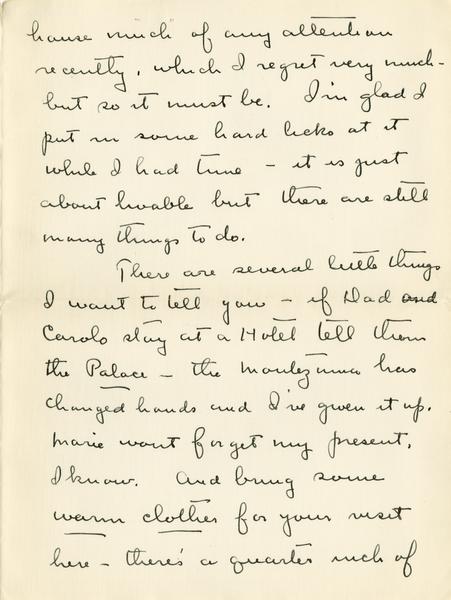 house much of any attention
recently, which I regret very much -
but so it must be. I'm glad I
put in some hard licks at it
while I had time - it is just
about livable but there are still
many things to do.
There are several little things
I want to tell you - if Dad and
Carolo stay at a Hotel tell them
the Palace - the Montezuma has
changed hands and I've given it up.
Marie wont forget my present,
I know. And bring some
warm clothes for your visit
here - there's a quarter inch of